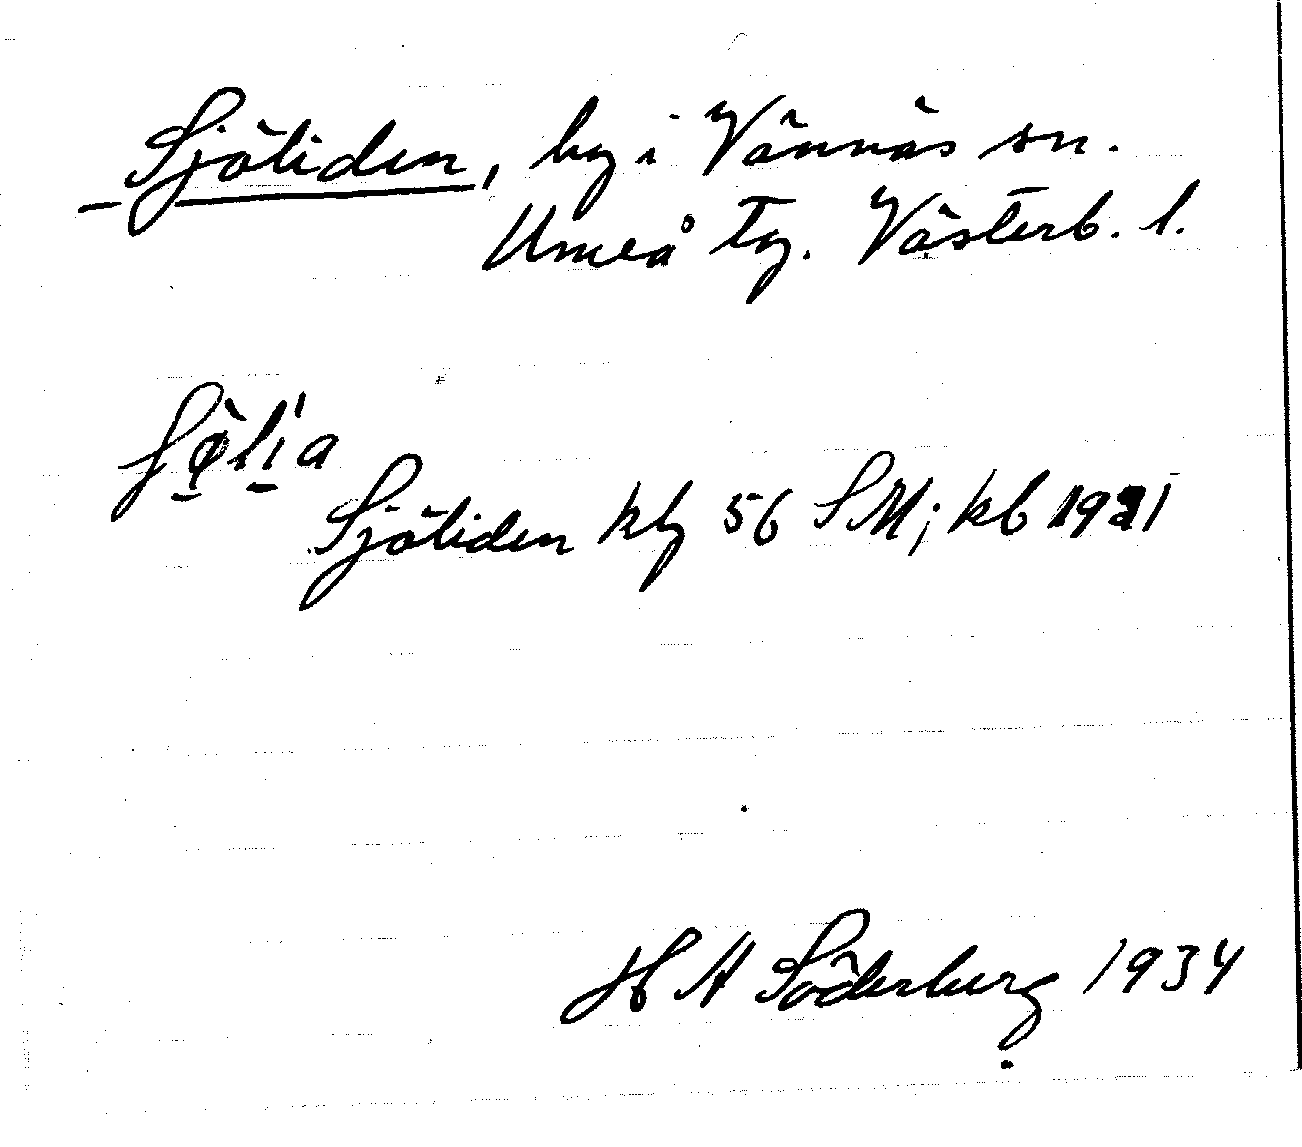 Sjöliden, by i Vännäs sn.
Umeå tg. Västerb. l.
Sjöliden kbl 56 SM; kb 1921
H A Söderberg 1934